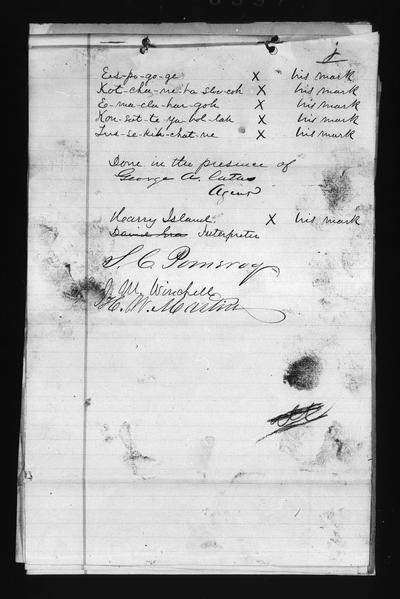 Ees-po-go-ge X his mark
Kot-cha-ne-ha sho-coh X his mark
Eo-ma-cla-har-goh X his mark
Kon-sit-te-ya-hol-lah X his mark
Tus-se-kih-chat-ne X his mark
Done in the presence of
George A. Cutler
Agent
Harry Island X his mark
Interpreter
S. C. Pomeroy
J. M. Winchell
H. W. Martin